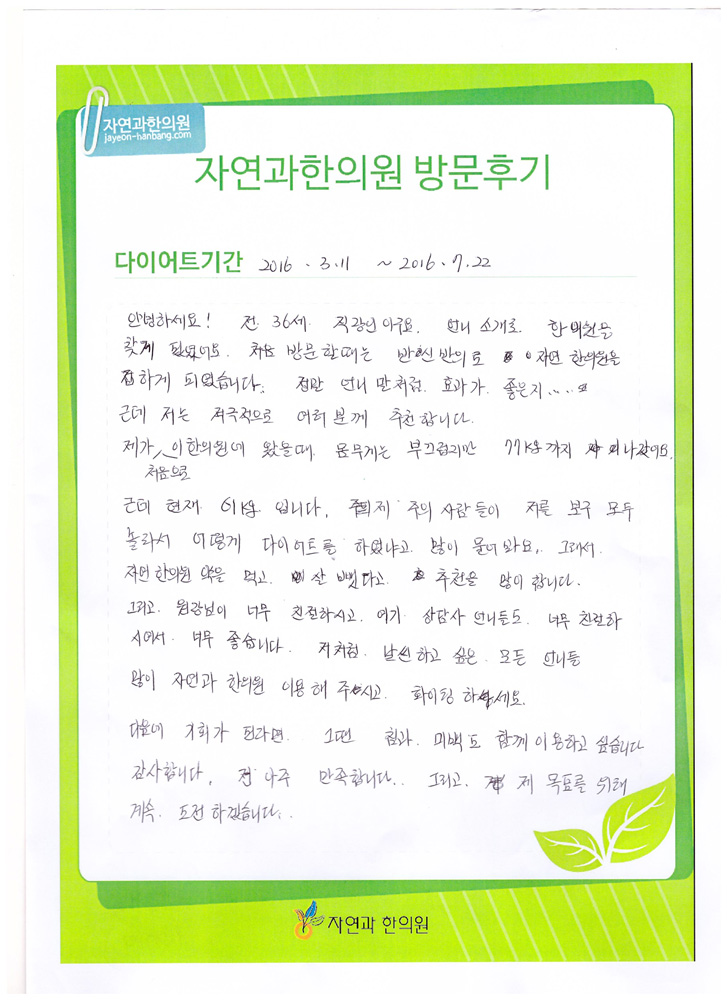 자연과한의원
jayeon-hanbang.com
자연과한의원 방문후기
다이어트기간 2016 . 3.11 ~ 2016 . 7.22
안녕하세요! 전 36세. 직장인 이구요. 언니 소개로. 한의원을
찾게 되었어요. 처음 방문할때는 반신반의로 자연 한의원을
접하게 되었습니다. 정말 언니 말처럼. 효과가. 좋은지.....
근데 저는 적극적으로 여러분께 추천합니다.
제가 처음으로 이한의원에 왔을때. 몸무게는 부끄럽지만 77kg까지 나갔어요.
근데 현재 61kg 입니다. 주의 사람들이 저를 보구 모두
놀라서 어떻게 다이어트를 하였냐고. 많이 물어봐요. 그래서.
자연한의원 약을 먹고. 살 뺐다고. 추천을 많이 합니다.
그리고. 원장님이 너무 친절하시고. 여기 상담사 언니들도. 너무 친절하
시어서. 너무 좋습니다. 저처럼. 날씬하고 싶은. 모든 언니들
많이 자연과 한의원 이용해 주시고. 화이팅 하세요.
다음에 기회가 된다면. 그땐 침과. 미백도 함께 이용하고 싶습니다
감사합니다. 전 아주 만족합니다.. 그리고. 제 목표를 위해
계속. 도전 하겠습니다..
자연과 한의원